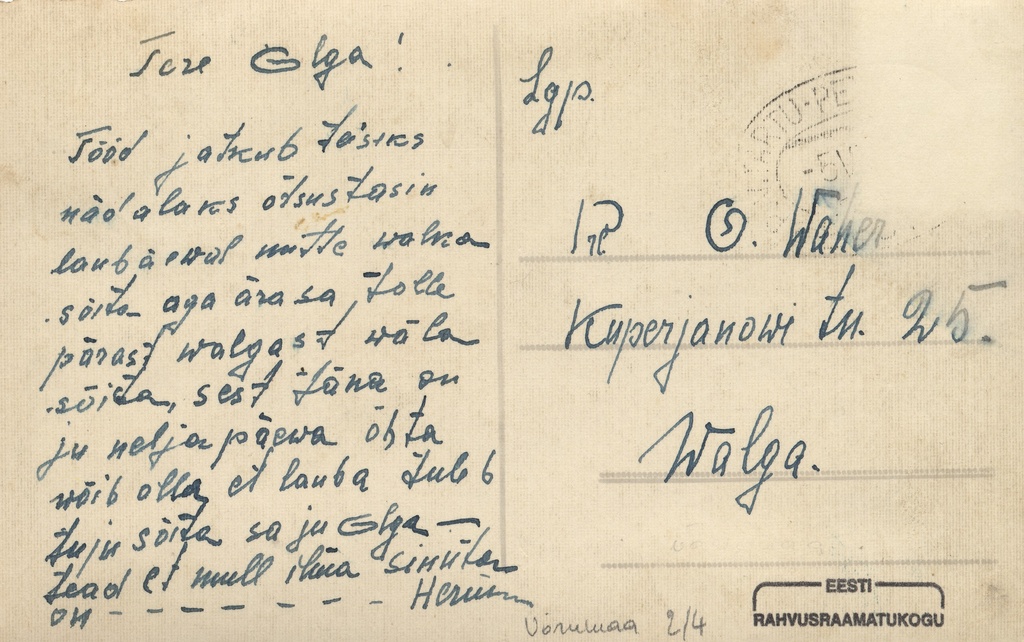 Tere Olga!
Tööd jatkub täsiks
nädalaks ötsustasin
laubäewal mitte walka
söita aga ära sa tolle
pärast walgast wäla
söita, sest täna on
ju nelja päewa öhta
wöib olla, et lauba tuleb
tuju söita sa ju Olga —
tead et mull ilma sinuta
on - - - - - -
Lgp.
TARTU-PE
-5 V
Pr O. Waher
Kuperjanowi tn. 25.
Walga.
EESTI
RAHVUSRAAMATUKOGU
Võrumaa 2/4